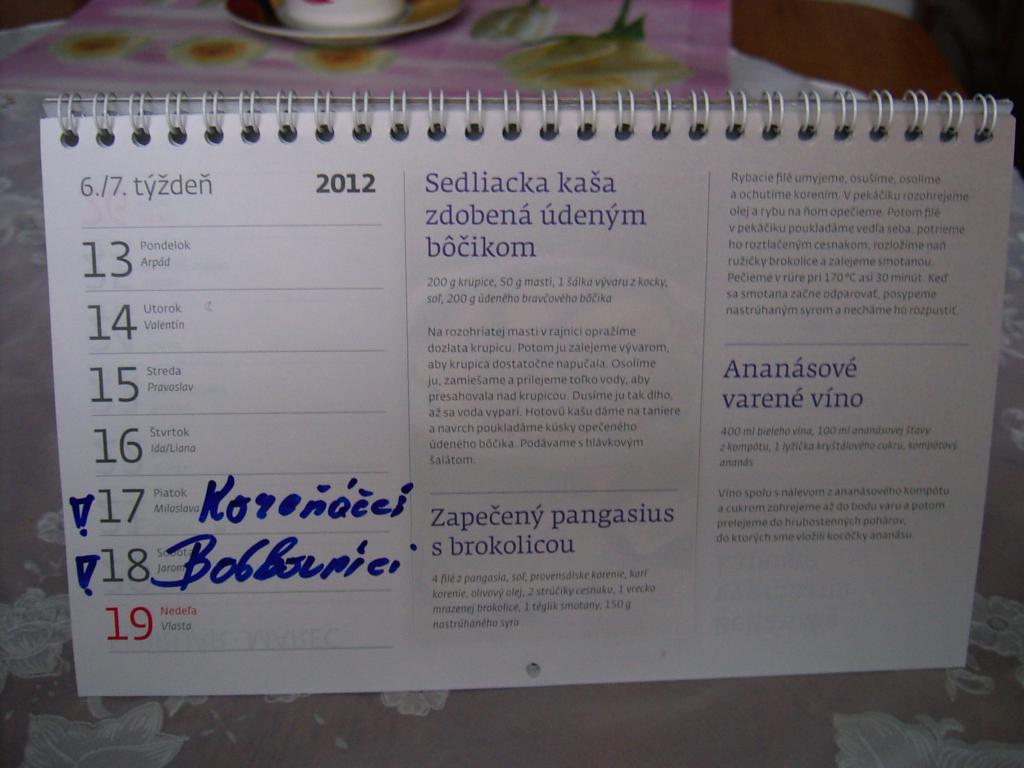 6./7. týždeň 2012
13 Pondelok
Arpád
14 Utorok
Valentín
15 Streda
Pravoslav
16 Štvrtok
Ida/Liana
! 17 Piatok
Miloslava Koreňáčci
! 18 Sobota
Jarom
19 Nedeľa
Vlasta
Sedliacka kaša
zdobená údeným
bôčikom
200 g krupice, 50 g masti, 1 šálka vývaru z kocky,
soľ, 200 g údeného bravčového bôčika
Na rozohriatej masti v rajnici opražíme
dozlata krupicu. Potom ju zalejeme vývarom,
aby krupica dostatočne napučala. Osolíme
ju, zamiešame a prilejeme toľko vody, aby
presahovala nad krupicou. Dusíme ju tak dlho,
až sa voda vyparí. Hotovú kašu dáme na taniere
a navrch poukladáme kúsky opečeného
údeného bôčika. Podávame s hlávkovým
šalátom.
Zapečený pangasius
s brokolicou
4 filé z pangasia, soľ, provensálske korenie, karí
korenie, olivový olej, 2 strúčiky cesnaku, 1 vrecko
mrazenej brokolice, 1 téglik smotany, 150 g
nastrúhaného syra
Rybacie filé umyjeme, osušíme, osolíme
a ochutíme korením. V pekáčiku rozohrejeme
olej a rybu na ňom opečieme. Potom filé
v pekáčiku poukladáme vedľa seba, potrieme
ho roztlačeným cesnakom, rozložíme naň
ružičky brokolice a zalejeme smotanou.
Pečieme v rúre pri 170 °C asi 30 minút. Keď
sa smotana začne odparovať, posypeme
nastrúhaným syrom a necháme ho rozpustiť.
Ananásové
varené víno
400 ml bieleho vína, 100 ml ananásovej šťavy
z kompótu, 1 lyžička kryštálového cukru, kompótový
ananás
Víno spolu s nálevom z ananásového kompótu
a cukrom zohrejeme až do bodu varu a potom
prelejeme do hrubostenných pohárov,
do ktorých sme vložili kocôčky ananásu.